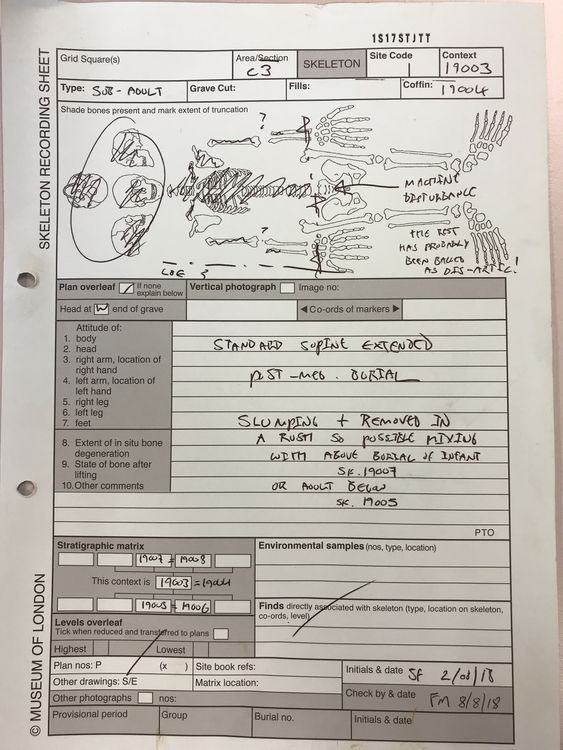 1S17STJTT
SKELETON RECORDING SHEET
Grid Square(s)
Area/Section
C3
SKELETON
Site Code
1
Context
19003
Type: SUB-ADULT
Grave Cut:
Fills:
Coffin: 19004
Shade bones present and mark extent of truncation
?
?
MACHINE
DISTURBANCE
THE REST
HAS PROBABLY
BEEN BAGGED
AS DIS-ARTIC!
LOE ?
Plan overleaf
If none explain below
Vertical photograph
Image no:
Head at W end of grave
◀ Co-ords of markers ▶
Attitude of:
1. body
2. head
3. right arm, location of
right hand
4. left arm, location of
left hand
5. right leg
6. left leg
7. feet
8. Extent of in situ bone
degeneration
9. State of bone after
lifting
10. Other comments
STANDARD SUPINE EXTENDED
POST-MED. BURIAL
SLUMPING + REMOVED IN
A RUSH SO POSSIBLE MIXING
WITH ABOVE BURIAL OF INFANT
SK. 19007
OR ADULT BELOW
SK. 19005
PTO
Stratigraphic matrix
19007 = 19008
This context is 19003 = 19004
19005 = 19006
Environmental samples (nos, type, location)
Finds directly associated with skeleton (type, location on skeleton,
co-ords, level)
Levels overleaf
Tick when reduced and transferred to plans
Highest
Lowest
Plan nos: P (x )
Site book refs:
Initials & date SF 2/08/18
Other drawings: S/E
Matrix location:
Check by & date FM 8/8/18
Other photographs
nos:
Provisional period
Group
Burial no.
Initials & date
© MUSEUM OF LONDON